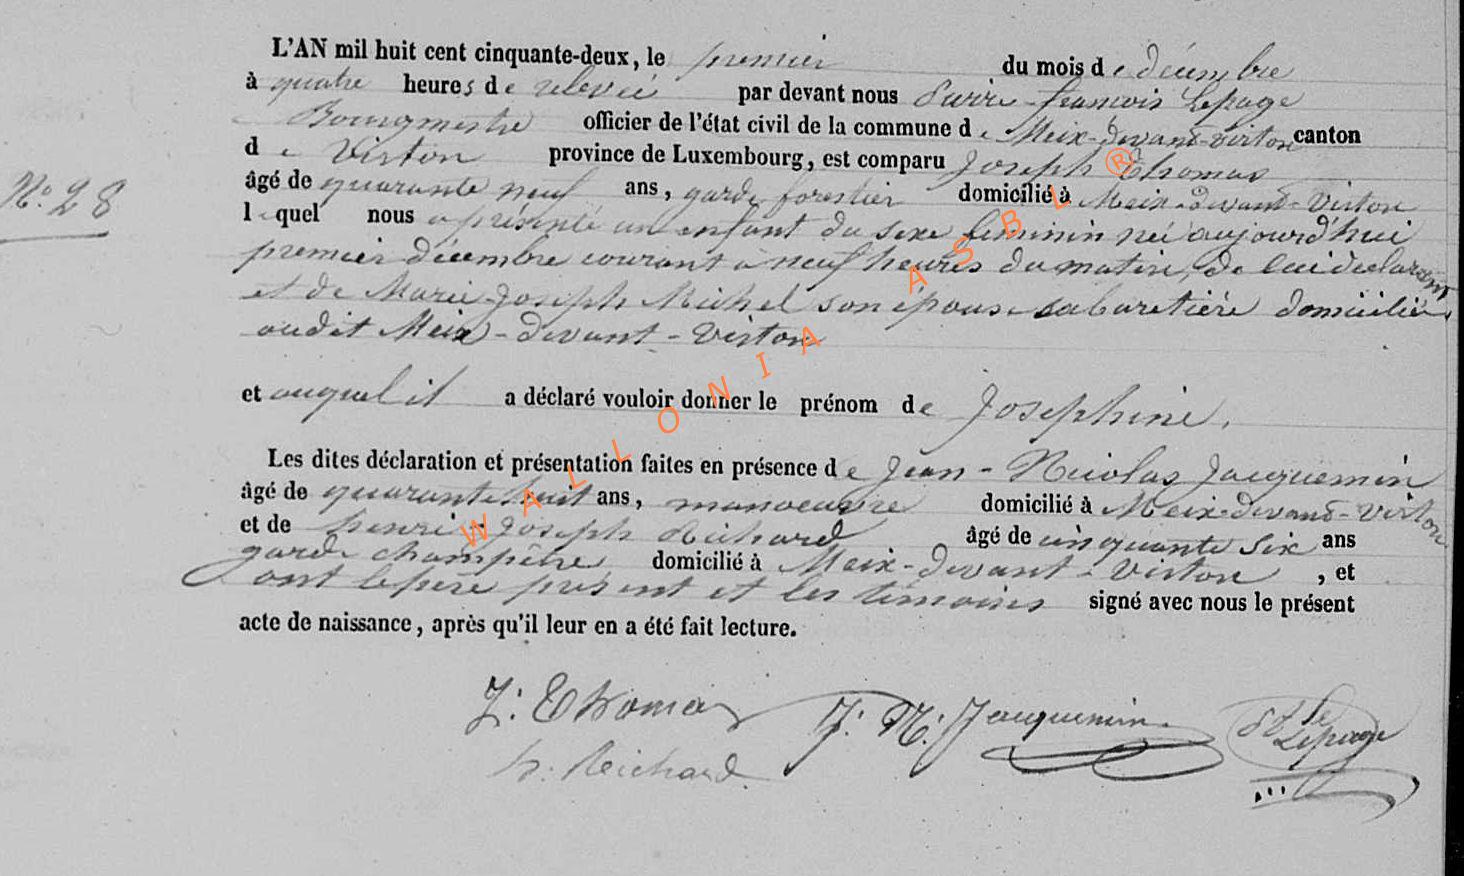 L'AN mil huit cent cinquante-deux, le premier du mois de décembre
à quatre heures de relevée par devant nous Pierre-françois Lepage
Bourgmestre officier de l'état civil de la commune de Meix-devant-virton canton
de Virton province de Luxembourg, est comparu Joseph Thomas
âgé de quarante neuf ans, garde forestier domicilié à Meix-devant-Virton
N.º 28
lequel nous a présenté un enfant du sexe féminin né aujourd'hui
premier décembre courant à neuf heures du matin, de lui déclarant
et de Marie-Joseph Michel son épouse cabaretière domiciliée
audit Meix-devant-Virton
et auquel il a déclaré vouloir donner le prénom de Joséphine,
Les dites déclaration et présentation faites en présence de Jean-Nicolas Jacquemin
âgé de quarante huit ans, manoeuvre domicilié à Meix-devant-virton
et de henri-Joseph Richard âgé de cinquante six ans
garde champêtre domicilié à Meix-devant-Virton, et
ont le père présent et les témoins signé avec nous le présent
acte de naissance, après qu'il leur en a été fait lecture.
J. Thomas J. N. Jacquemin Lepage
h. Reichard
WALLONIA ASBL ®